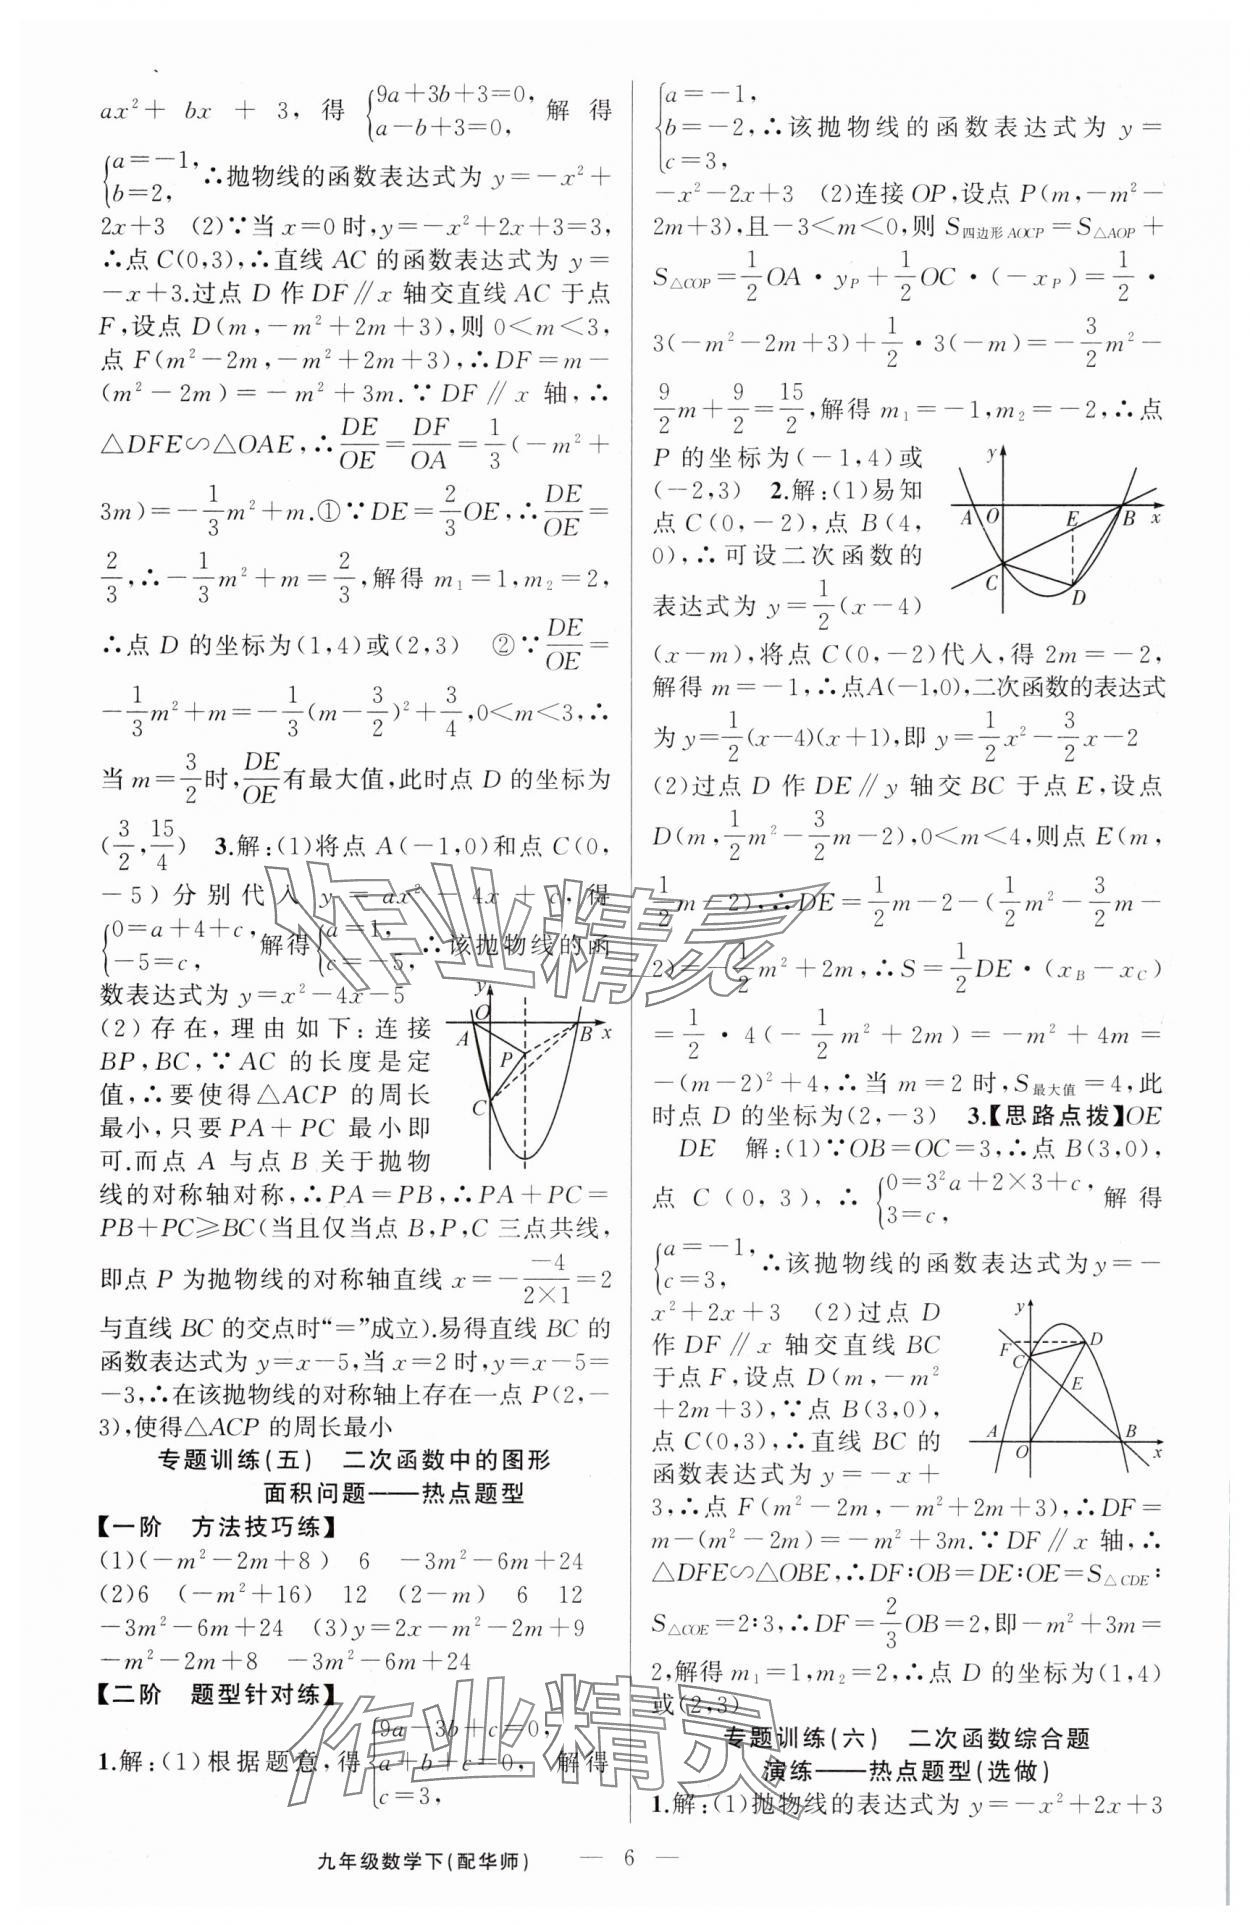 ax²+ bx + 3, 得 {9a+3b+3=0, a-b+3=0, 解 得
{a=-1, b=2, ∴抛物线的函数表达式为 y=-x²+
2x+3 (2)∵当 x=0 时,y=-x²+2x+3=3,
∴点 C(0,3),∴直线 AC 的函数表达式为 y=
-x+3.过点 D 作 DF∥x 轴交直线 AC 于点
F,设点 D(m,-m²+2m+3),则 0<m<3,
点 F(m²-2m,-m²+2m+3),∴DF=m-
(m²-2m)=-m²+3m.∵DF∥x 轴,∴
△DFE∽△OAE,∴DE/OE=DF/OA=1/3(-m²+
3m)=-1/3m²+m.①∵DE=2/3OE,∴DE/OE=
2/3,∴-1/3m²+m=2/3,解得 m₁=1,m₂=2,
∴点 D 的坐标为(1,4)或(2,3) ②∵DE/OE=
-1/3m²+m=-1/3(m-3/2)²+3/4,0<m<3,∴
当 m=3/2时,DE/OE有最大值,此时点 D 的坐标为
(3/2,15/4) 3.解:(1)将点 A(-1,0)和点 C(0,
-5)分别代入 y=ax²-4x+c,得
{0=a+4+c, -5=c, 解得{a=1, c=-5, ∴该抛物线的函
数表达式为 y=x²-4x-5
(2)存在,理由如下:连接
BP,BC,∵AC 的长度是定
值,∴要使得△ACP 的周长
最小,只要 PA+PC 最小即
可.而点 A 与点 B 关于抛物
y O A B x P C
线的对称轴对称,∴PA=PB,∴PA+PC=
PB+PC≥BC(当且仅当点 B,P,C 三点共线,
即点 P 为抛物线的对称轴直线 x=-(-4)/(2×1)=2
与直线 BC 的交点时“=”成立).易得直线 BC 的
函数表达式为 y=x-5,当 x=2 时,y=x-5=
-3,∴在该抛物线的对称轴上存在一点 P(2,-
3),使得△ACP 的周长最小
专题训练(五) 二次函数中的图形
面积问题——热点题型
【一阶 方法技巧练】
(1)(-m²-2m+8) 6 -3m²-6m+24
(2)6 (-m²+16) 12 (2-m) 6 12
-3m²-6m+24 (3)y=2x-m²-2m+9
-m²-2m+8 -3m²-6m+24
【二阶 题型针对练】
1.解:(1)根据题意,得{9a-3b+c=0, a+b+c=0, c=3, 解得
{a=-1, b=-2, c=3, ∴该抛物线的函数表达式为 y=
-x²-2x+3 (2)连接 OP,设点 P(m,-m²-
2m+3),且-3<m<0,则 S四边形AOCP=S△AOP+
S△COP=1/2OA·yP+1/2OC·(-xP)=1/2·
3(-m²-2m+3)+1/2·3(-m)=-3/2m²-
9/2m+9/2=15/2,解得 m₁=-1,m₂=-2,∴点
P 的坐标为(-1,4)或
(-2,3) 2.解:(1)易知
点 C(0,-2),点 B(4,
0),∴可设二次函数的
表达式为 y=1/2(x-4)
y A O E B x C D
(x-m),将点 C(0,-2)代入,得 2m=-2,
解得 m=-1,∴点A(-1,0),二次函数的表达式
为 y=1/2(x-4)(x+1),即 y=1/2x²-3/2x-2
(2)过点 D 作 DE∥y 轴交 BC 于点 E,设点
D(m,1/2m²-3/2m-2),0<m<4,则点 E(m,
1/2m-2),∴DE=1/2m-2-(1/2m²-3/2m-
2)=-1/2m²+2m,∴S=1/2DE·(xB-xC)
=1/2·4(-1/2m²+2m)=-m²+4m=
-(m-2)²+4,∴当 m=2 时,S最大值=4,此
时点 D 的坐标为(2,-3) 3.【思路点拨】OE
DE 解:(1)∵OB=OC=3,∴点 B(3,0),
点 C(0,3),∴{0=3²a+2×3+c, 3=c, 解得
{a=-1, c=3, ∴该抛物线的函数表达式为 y=-
x²+2x+3 (2)过点 D
作 DF∥x 轴交直线 BC
于点 F,设点 D(m,-m²
+2m+3),∵点 B(3,0),
点 C(0,3),∴直线 BC 的
函数表达式为 y=-x+
y F D C E A O B x
3,∴点 F(m²-2m,-m²+2m+3),∴DF=
m-(m²-2m)=-m²+3m.∵DF∥x 轴,∴
△DFE∽△OBE,∴DF∶OB=DE∶OE=S△CDE∶
S△COE=2∶3,∴DF=2/3OB=2,即-m²+3m=
2,解得 m₁=1,m₂=2,∴点 D 的坐标为(1,4)
或(2,3)
专题训练(六) 二次函数综合题
演练——热点题型(选做)
1.解:(1)抛物线的表达式为 y=-x²+2x+3
作业精灵
作业精灵
九年级数学下(配华师) — 6 —